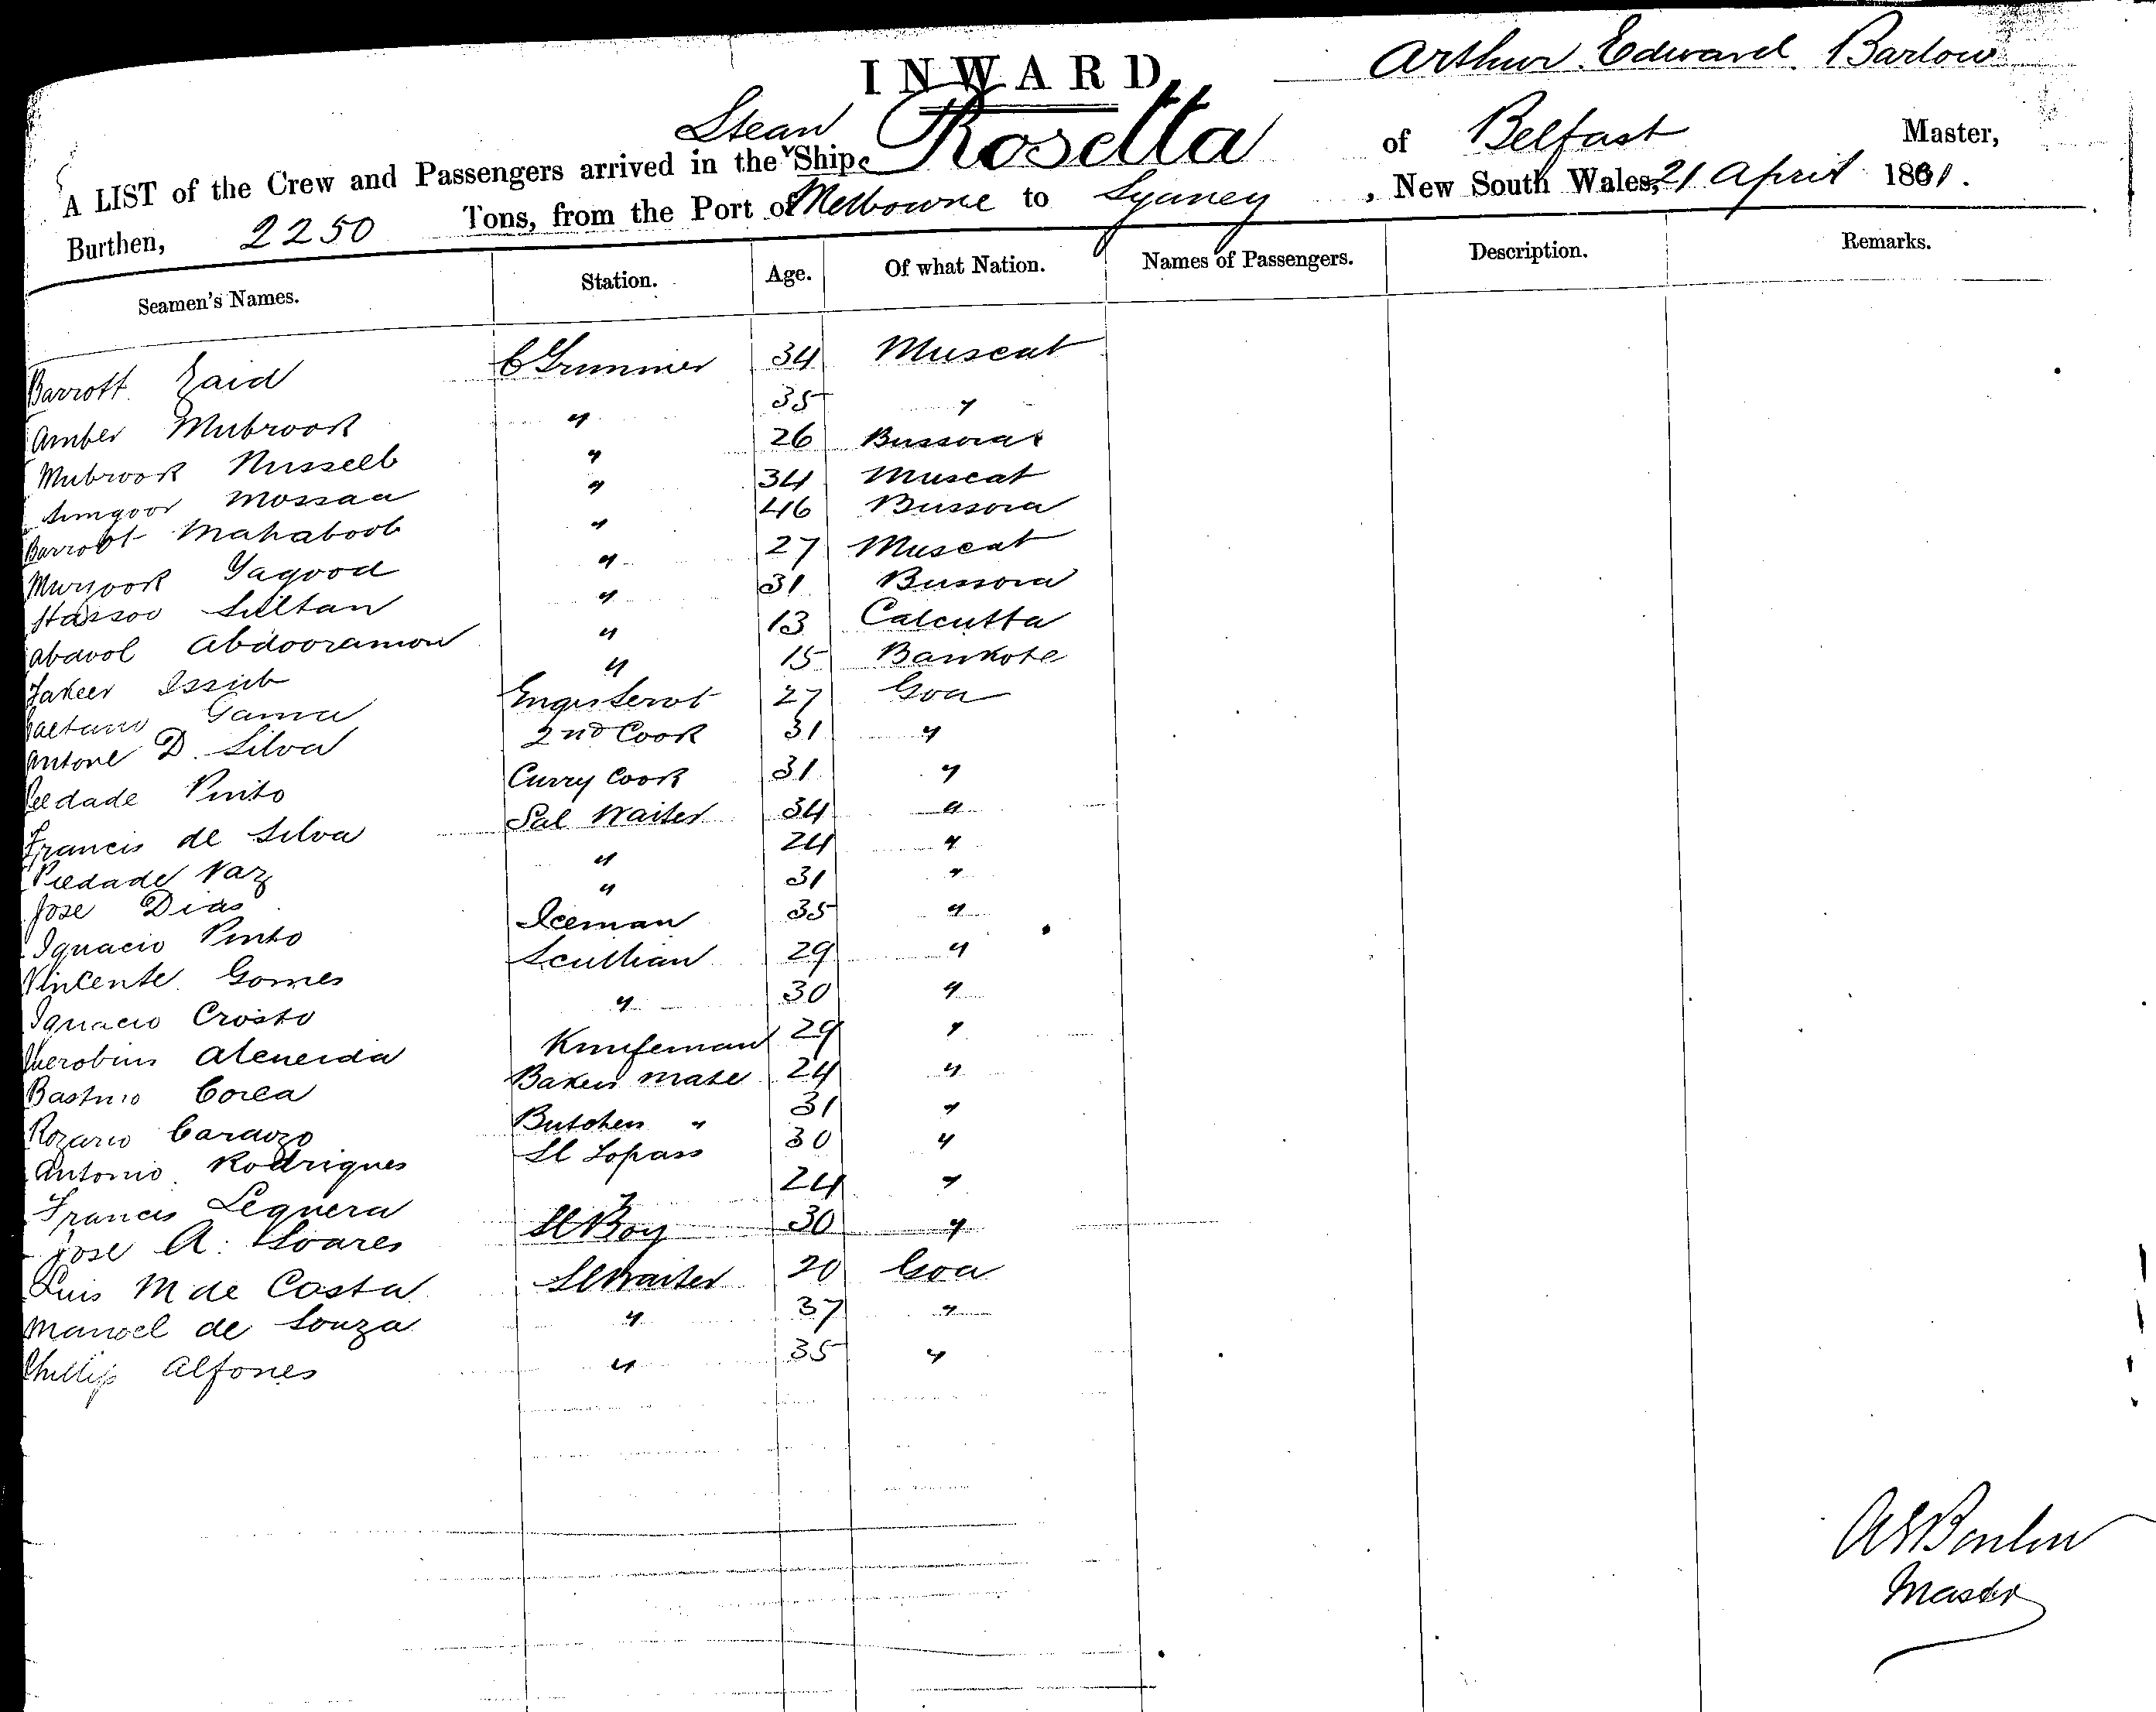 INWARD
Arthur Edward Barlow
A LIST of the Crew and Passengers arrived in the Steam Ship Rosetta of Belfast Master,
Burthen, 2250 Tons, from the Port of Melbourne to Sydney, New South Wales, 21 April 1881.
Seamen's Names. Station. Age. Of what Nation. Names of Passengers. Description. Remarks.
Barrott Zaid C Trimmer 34 Muscat
Amber Mubrook " 35 "
Mubrook Nusseeb " 26 Bussora
Mossaa " 34 Muscat
Barroot Mahaboob " 46 Bussora
Murzook Yagood " 27 Muscat
Hassoo Sultan " 31 Bussora
Abdool Abdooramon " 13 Calcutta
Fakeer Issub " 15 Bankote
Caetano Gama Engrs Servt 27 Goa
Antone D. Silva 2nd Cook 31 "
Piedade Pinto Curry Cook 31 "
Francis de Silva Sal Waiter 34 "
Piedade Vaz " 24 "
Jose Dias " 31 "
Ignacio Pinto Iceman 35 "
Vincente Gomes Scullian 29 "
Ignacio Crosto " 30 "
Almeida Knifeman 29 "
Bastnio Corea Bakers Mate 24 "
Rozario Caraozo Butchers " 31 "
Antonio Rodrigues Sl Topass 30 "
Francis Sequera " 24 "
Jose A. Soares Sl Boy 30 "
Luis M de Costa Sl Waiter 20 Goa
Manoel de Souza " 37 "
Phillip Alfones " 35 "
AEBarlow
Master